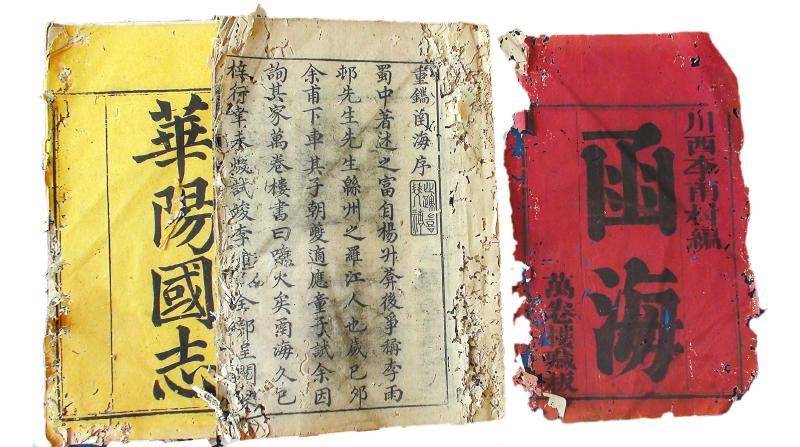 華陽國志
重鐫函海序
蜀中著述之富自楊升菴後爭稱李雨
邨先生先生緜州之羅江人也歲己邜
余甫下車其子朝夔適應童子試余因
詢其家萬卷樓書曰燬火矣函海久已
梓行幸未燬試竣李余呈閱
川西李雨村編
函海
萬卷樓藏板